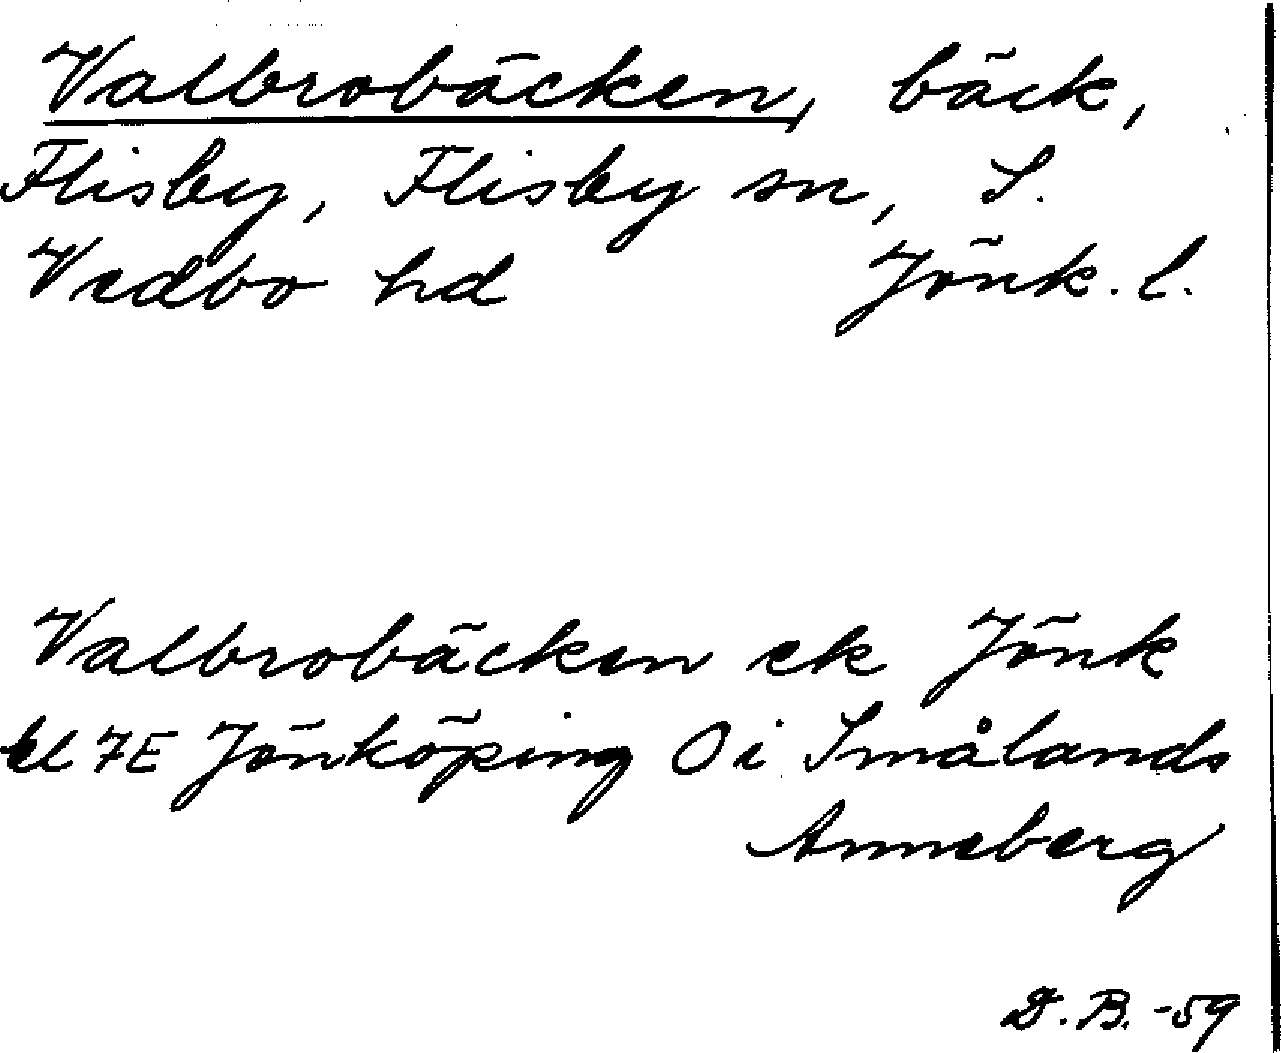 Valbrobäcken, bäck,
Flisby, Flisby sn, S.
Vedbo hd Jönk. l.
Valbrobäcken ek Jönk
bl 7E Jönköping O i Smålands
Anneberg
D. B. -59